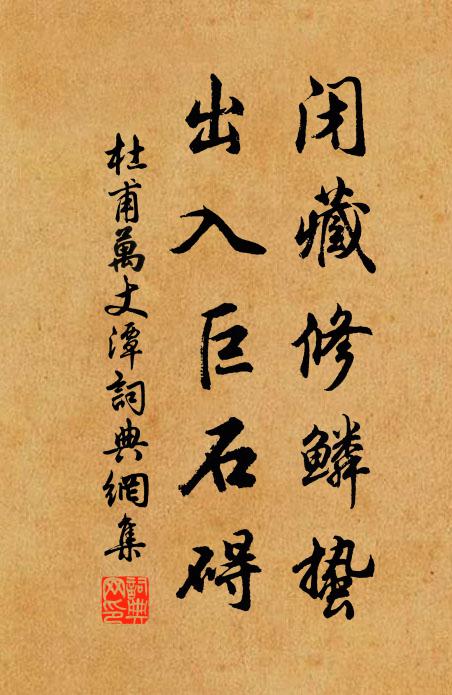 闭藏修鳞蛰
出入巨石碍
杜甫萬丈潭詞典網集
詞典
网印